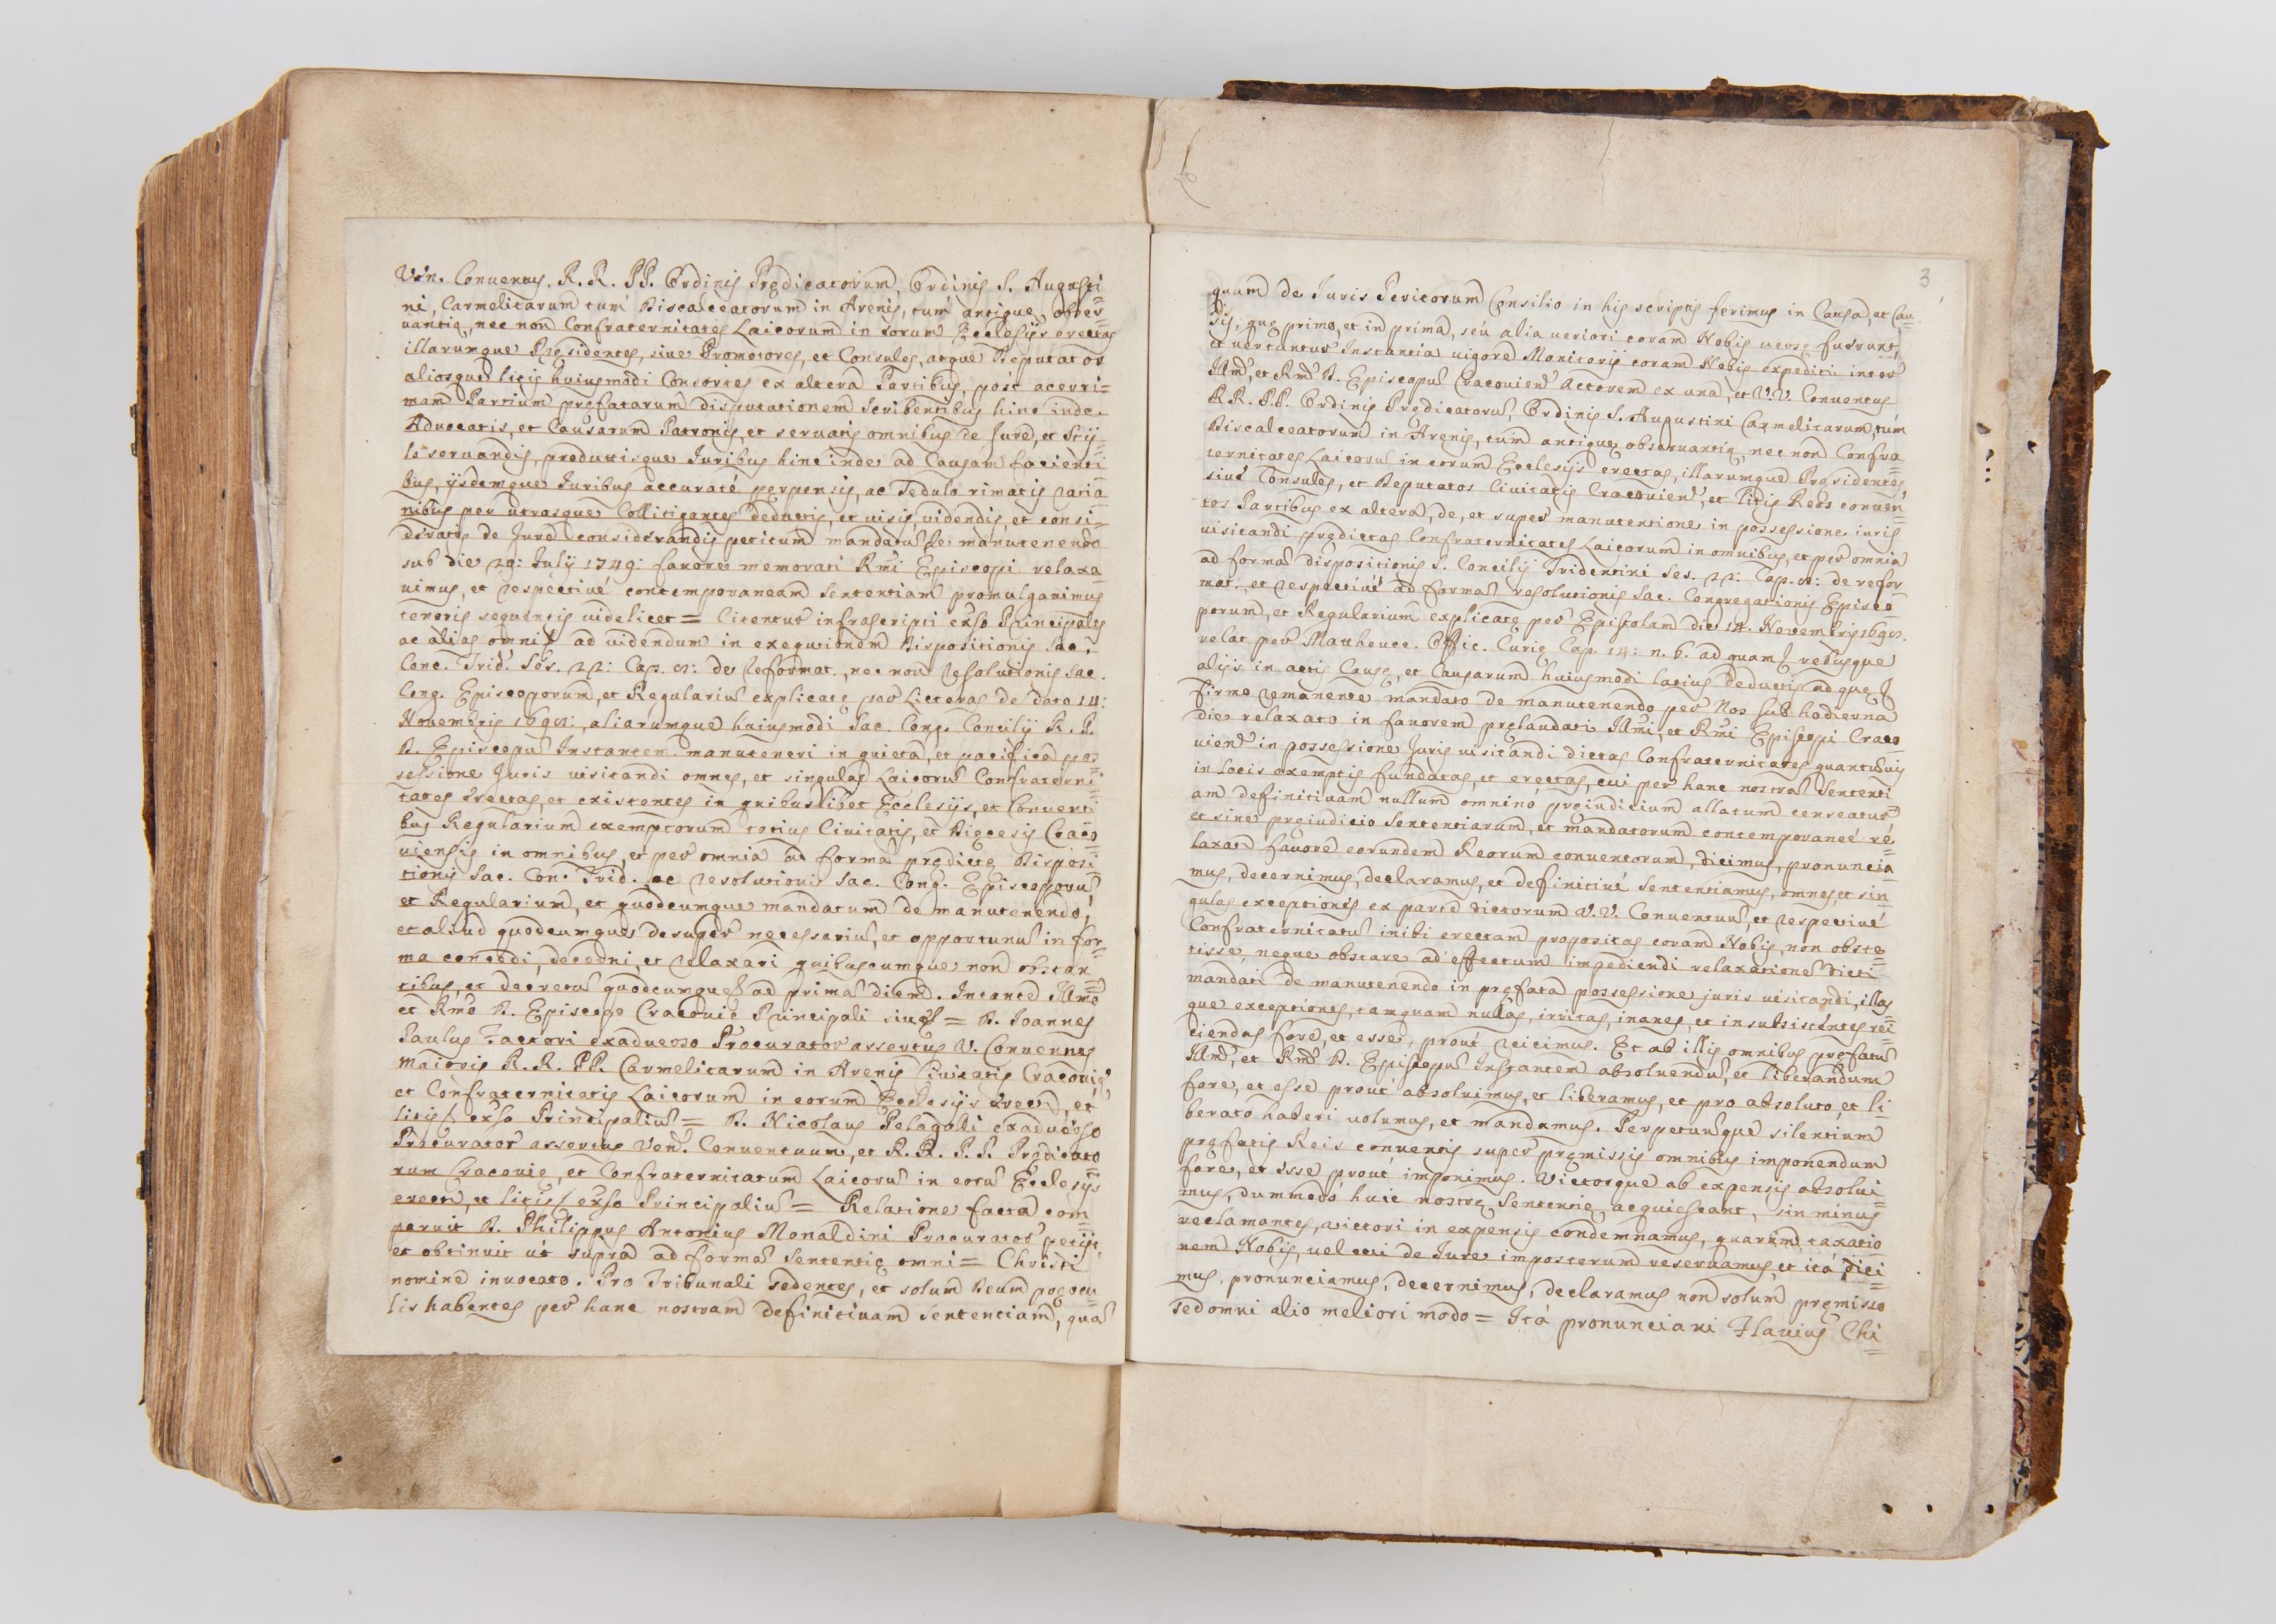 Ven. Conventus. R. R. PP. Ordinis Prędicatorum, Ordinis S. Augusti=
ni, Carmelitarum tum Discalceatorum in Arenis, tum antiquę obser=
uantię, nec non Confraternitates Laicorum in eorum Ecclesijs erectas
illarumque Pręsidentes, siue Promotores, et Consules, atque Deputatos
aliosque litis huiusmodi Consortes ex altera Partibus, post acerri=
mam Partium pręfatarum disputationem Scribentibus hinc inde
Aduocatis, et Causarum Patronis, et seruatis omnibus de Jure, et Sty=
lo seruandis, productisque Juribus hinc inde ad Causam facienti=
bus, ijsdemque Juribus accuraté perpensis, ac sedulo rimatis ratio=
nibus per utrasque Collitigantes deductis, et uisis uidendis, et consi=
deratis de Jure considerandis petitum mandatum de manutenendo
sub die 29: Julij 1749: fauore memorati Rmi Episcopi relaxa=
uimus, et respectiué contemporaneam Sententiam promulgauimus
tenoris sequentis uidelicet = Citentur infrascripti exso Principales
ac alias omni ad uidendum in exequtionem Dispositionis Sac.
Conc. Trid. Ses. 22: Cap. 8: de reformat., nec non resolutionis Sac.
Cong. Episcoporum, et Regularium explicatę per Litteras de dato 14:
Nouembris aliarumque huiusmodi Sac. Cong. Concilij R. P.
D. Episcopum Instantem manuteneri in quieta, et pacifica pos=
sessione Juris uisitandi omnes, et singulas Laicorum Confraterni=
tates erectas, et existentes in quibuslibet Ecclesijs, et Conuenti=
bus Regularium exemptorum totius Ciuitatis, et Dięcesis Craco=
uiensis in omnibus, et per omnia ad formam prędictę Disposi=
tionis Sac. Con. Trid. ac resolutionis Sac. Cong. Episcoporum
et Regularium, et quodcumque mandatum de manutenendo,
et aliud quodcumque desuper necessarium, et opportunum in for=
ma concedi, decerni, et relaxari quibuscumque non obstan=
tibus, et decretum quodcumque ad primam diem. Instante Illmo
et Rmo D. Episcopo Cracouię Principali siue = D. Joannes
Paulus Fattori exaduerso Procurator assertus V. Conuentus
Maioris R. R. PP. Carmelitarum in Arenis Ciuitatis Cracouię,
et Confraternitatis Laicorum in eorum Ecclesijs erectę, et
litis exso Principalium = D. Nicolaus Pelagalli exaduerso
Procurator assertus Ven. Conuentuum, et R. R. P. P. Prędicato=
rum Cracouię, et Confraternitatum Laicorum in eorum Ecclesijs
erectę, et litis exso Principalium = Relatione facta com=
paruit D. Philippus Antonius Monaldini Procurator petijt,
et obtinuit ut supra ad formam Sententię omni = Christi
nomine inuocato. Pro Tribunali sedentes, et solum Deum prę ocu=
lis habentes per hanc nostram definitiuam Sententiam, quam
3
quam de Juris Peritorum Consilio in his scriptis ferimus in Causa, et Cau=
sis, quę primo, et in prima, seu alia ueriori coram Nobis uersę fuerunt,
et uertuntur Instantia uigore Monitorij coram Nobis expediti inter
Illmum, et Rmum D. Episcopum Cracouiensem Actorem ex una, et V.V. Conuentus
R R. P.P. Ordinis Prędicatorum, Ordinis S. Augustini Carmelitarum, tum
Discalceatorum in Arenis, tum antiquę obseruantię, nec non Confra=
ternitates Laicorum in eorum Ecclesijs erectas, illarumque Pręsidentes,
siue Consules, et Deputatos Ciuitatis Cracouiensis, et litis Reos conuen=
tos Partibus ex altera, de, et super manutentione in possessione iuris
uisitandi prędictas Confraternitates Laicorum in omnibus, et per omnia
ad formam dispositionis S. Concilij Tridentini Ses. 22: Cap. 8: de refor=
mat., et respectiué ad formam resolutionis Sac. Congregationis Episco=
porum, et Regularium explicatę per Epistolam die 14. Nouembris
relat. per Matheucc. Offic. Curię Cap. 14: n. 6. ad quam rebusque
alijs in actis Causę, et Causarum huiusmodi latius deductis ad quę
firmo remanente mandato de manutenendo per Nos sub hodierna
die relaxato in fauorem pręlaudati Illmi, et Rmi Episcopi Craco=
uiensis in possessione Juris uisitandi dictas Confraternitates quantumuis
in locis exemptis fundatas, et erectas, cui per hanc nostram Sententi=
am definitiuam nullum omninó pręiudicium allatum censeatur
et sine preiudicio Sententiarum, et mandatorum contemporaneé re=
laxatę fauore eorundem Reorum conuentorum, dicimus, pronuncia=
mus, decernimus, declaramus, et definitiué sententiamus, omnes, et sin=
gulas exceptiones ex parte dictorum V. V. Conuentuum, et respectiué
Confraternitatum inibi erectarum propositas coram Nobis non obsti=
tisse, neque obstare ad effectum impediendi relaxationem dicti
mandati de manutenendo in pręfata possessione juris uisitandi, illas=
que exceptiones, tamquam nullas, irritas, inanes, et insubsistentes rei=
ciendas fore, et esse, prout reicimus. Et ab illis omnibus pręfatum
Illmum, et Rmum D. Episcopum Instantem absoluendum, et liberandum
fore, et esse prout absoluimus, et liberamus, et pro absoluto, et li=
berato haberi uolumus, et mandamus. Perpetuumque silentium
pręfatis Reis conuentis super pręmissis omnibus imponendum
fore, et esse, prout imponimus. Victosque ab expensis absolui=
mus, dummodo huic nostrę Sententię acquiescant, sin minus
reclamantes, uictori in expensis condemnamus, quarum taxatio=
nem Nobis, uel cui de Jure imposterum reseruamus, et itá dici=
mus, pronunciamus, decernimus, declaramus non solum pręmisso
sed omni alio meliori modo = Itá pronunciaui Flauius Chi=